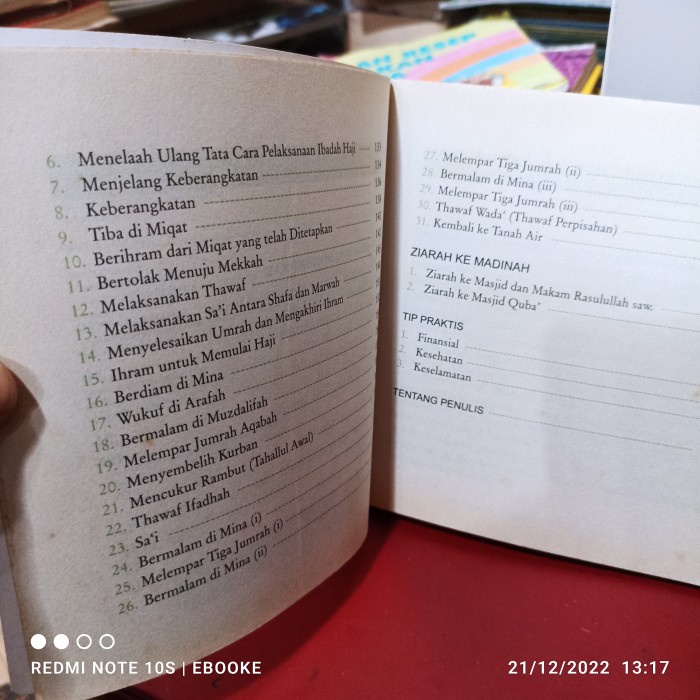 6. Menelaah Ulang Tata Cara Pelaksanaan Ibadah Haji 133
7. Menjelang Keberangkatan 134
8. Keberangkatan 136
9. Tiba di Miqat
10. Berihram dari Miqat yang telah Ditetapkan
11. Bertolak Menuju Mekkah
12. Melaksanakan Thawaf
13. Melaksanakan Sa'i Antara Shafa dan Marwah
14. Menyelesaikan Umrah dan Mengakhiri Ihram
15. Ihram untuk Memulai Haji
16. Berdiam di Mina
17. Wukuf di Arafah
18. Bermalam di Muzdalifah
19. Melempar Jumrah Aqabah
20. Menyembelih Kurban
21. Mencukur Rambut (Tahallul Awal)
22. Thawaf Ifadhah
23. Sa'i
24. Bermalam di Mina (i)
25. Melempar Tiga Jumrah (i)
26. Bermalam di Mina (ii)
27. Melempar Tiga Jumrah (ii)
28. Bermalam di Mina (iii)
29. Melempar Tiga Jumrah (iii)
30. Thawaf Wada' (Thawaf Perpisahan)
31. Kembali ke Tanah Air
ZIARAH KE MADINAH
1. Ziarah ke Masjid dan Makam Rasulullah saw.
2. Ziarah ke Masjid Quba'
TIP PRAKTIS
1. Finansial
2. Kesehatan
3. Keselamatan
TENTANG PENULIS
REDMI NOTE 10S | EBOOKE
21/12/2022 13:17